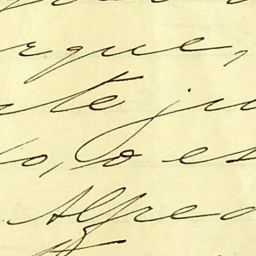 rque,
te ju
o, o es
Alfred